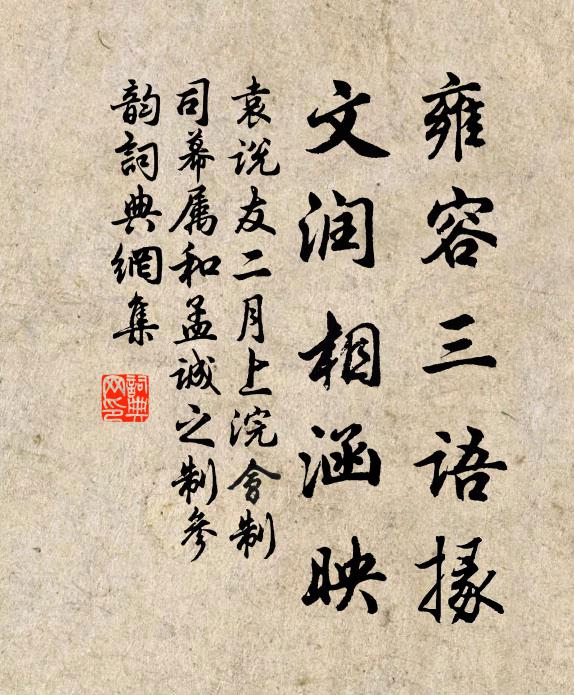 雍容三語掾
文润相涵映
袁说友二月上浣會制
司幕属和孟诚之制參
韵詞典網集
詞典网印